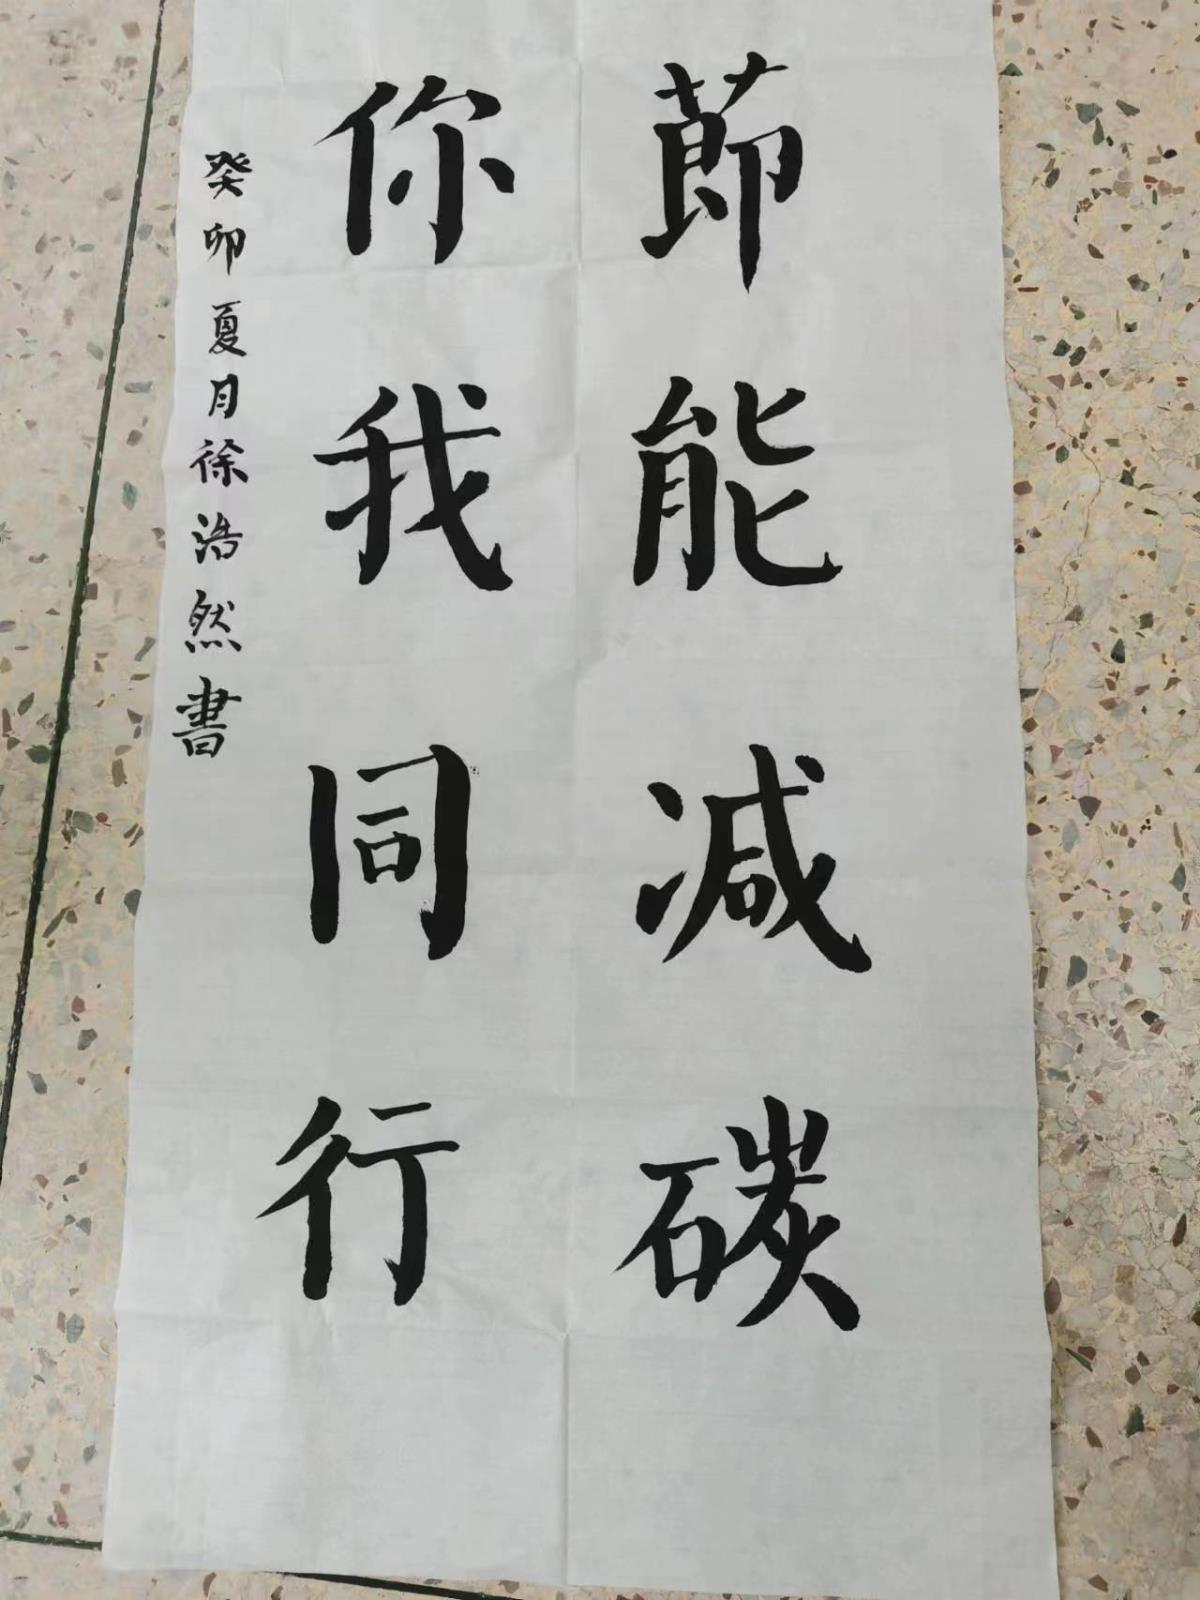 節能减碳
你我同行
癸卯夏月徐浩然書